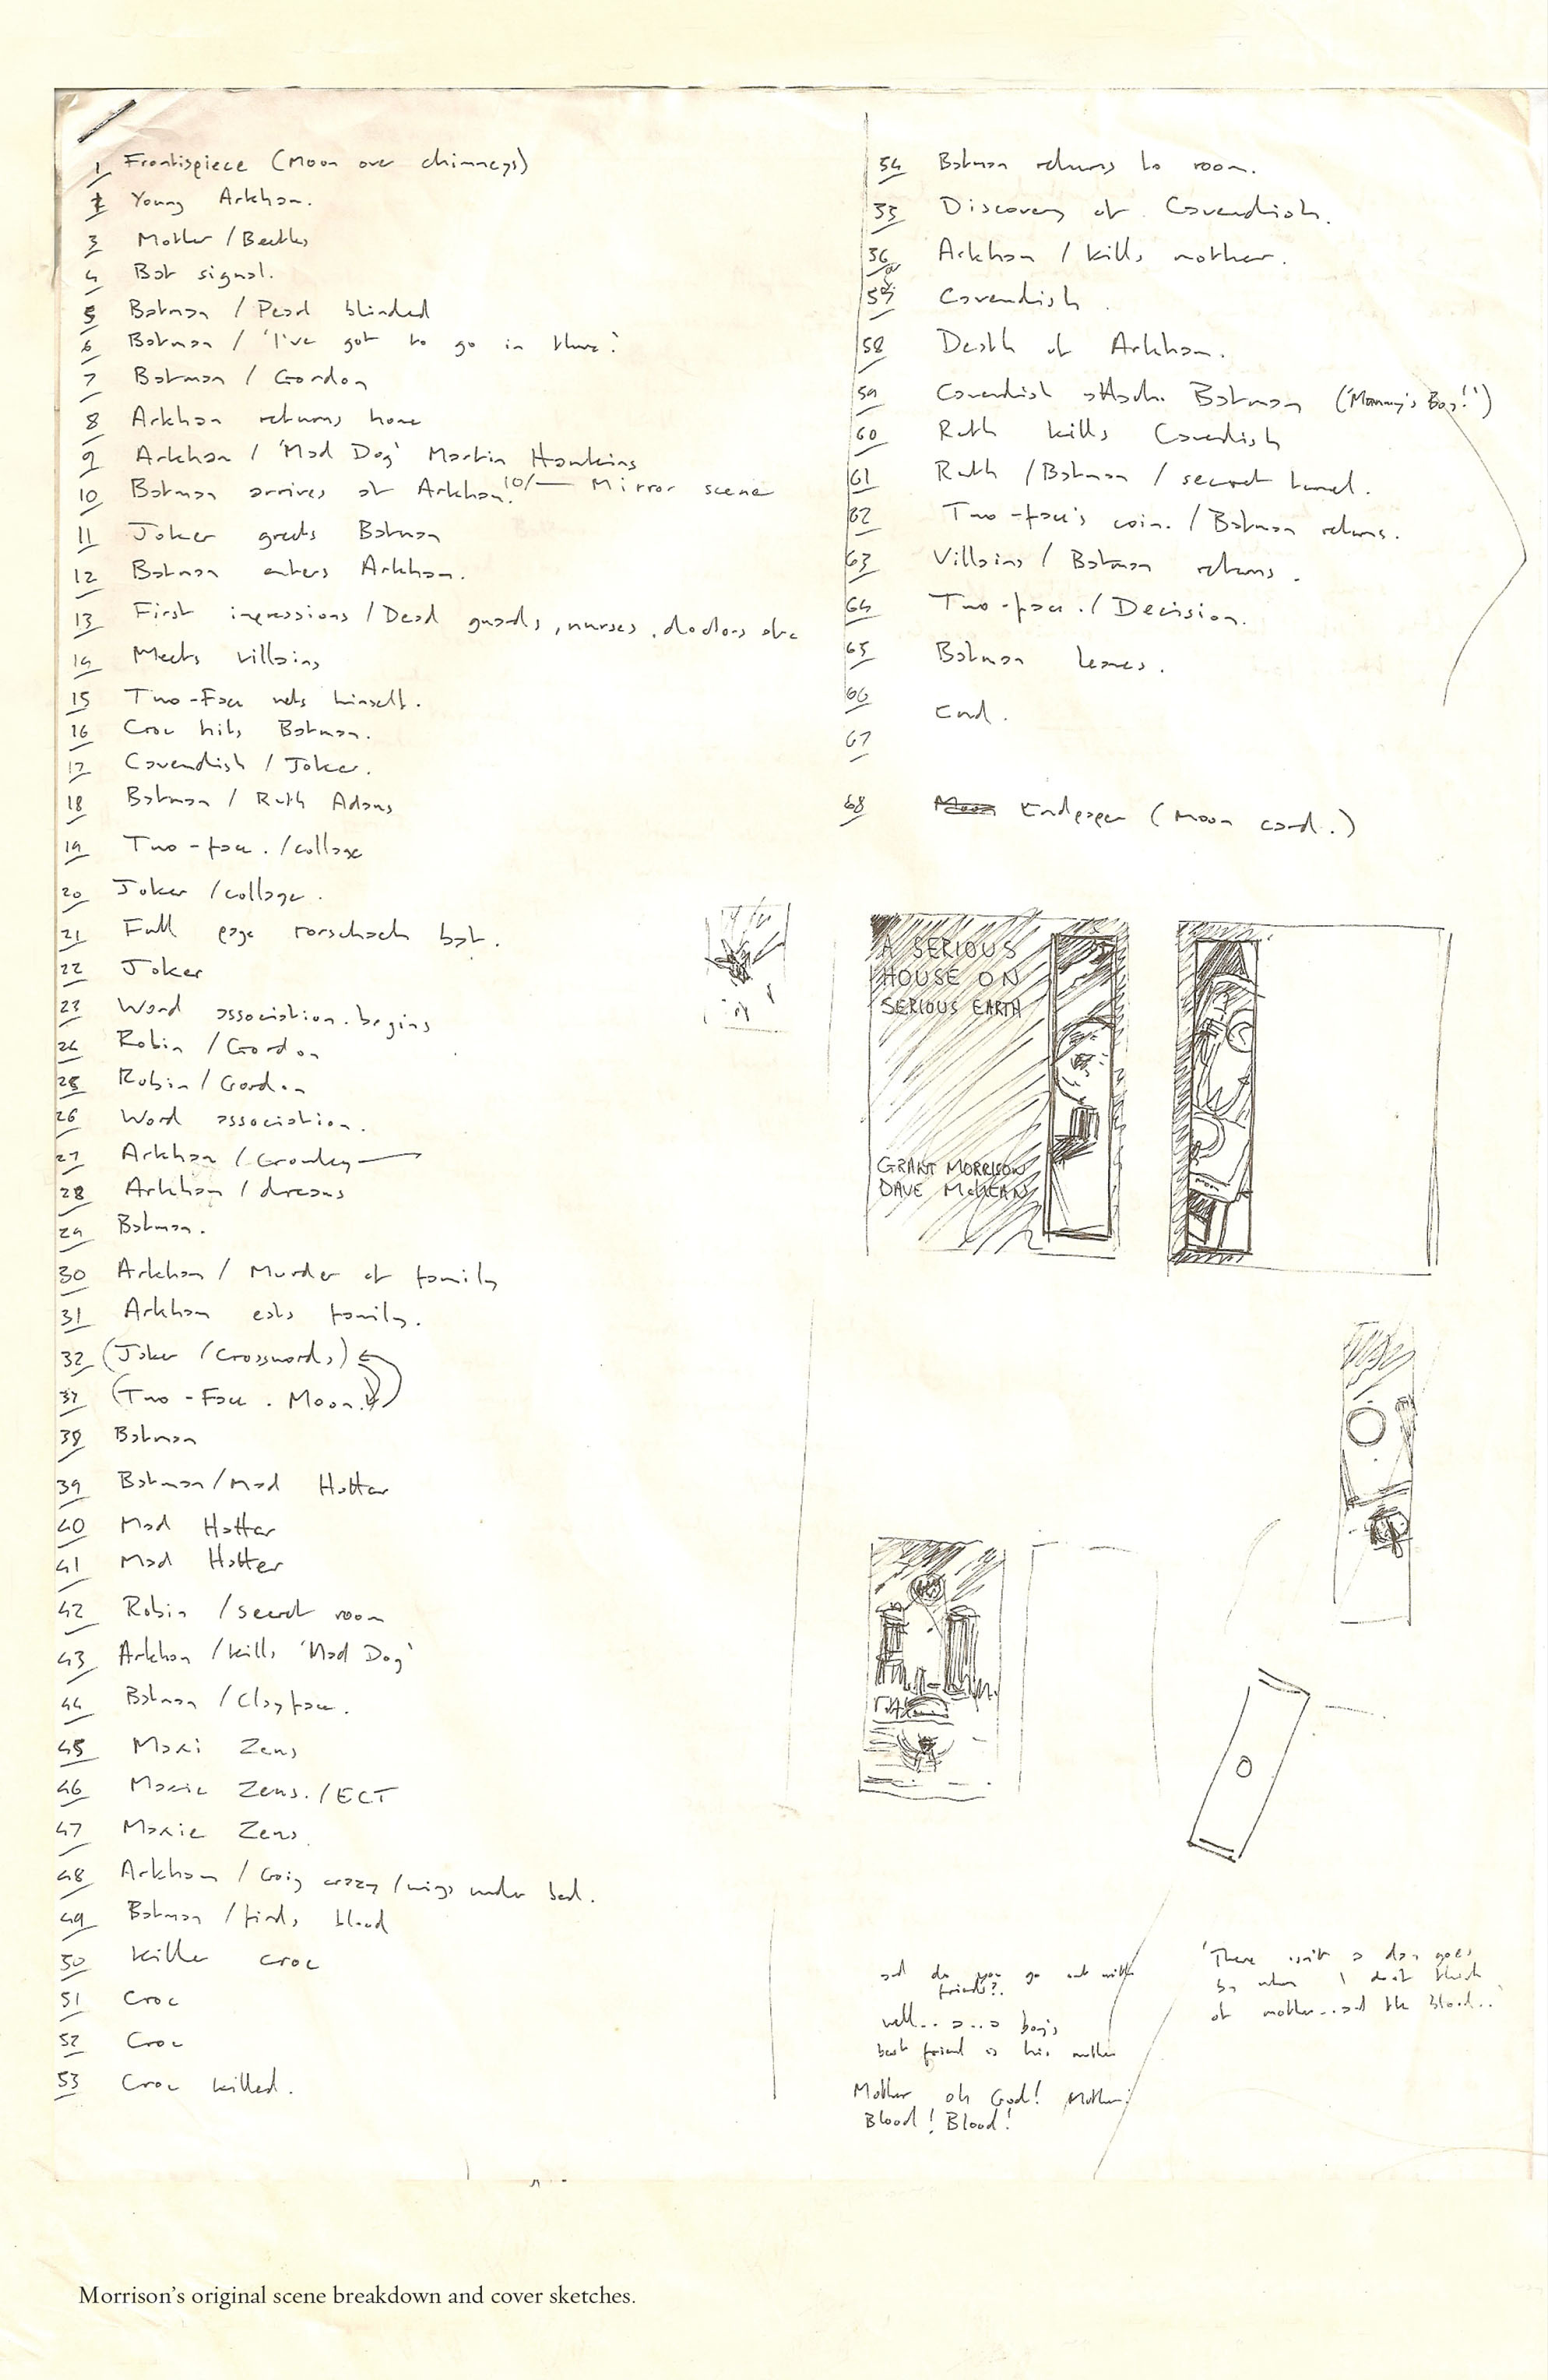 1 Frontispiece (Moon over chimneys)
2 Young Arkham.
3 Mother / Beetles
4 Bat signal.
5 Batman / Pearl blinded
6 Batman / 'I've got to go in there'
7 Batman / Gordon
8 Arkham returns home
9 Arkham / 'Mad Dog' Martin Hawkins
10 Batman arrives at Arkham. 10/— Mirror scene
11 Joker greets Batman
12 Batman enters Arkham.
13 First impressions / Dead guards, nurses, doctors etc
14 Meets villains
15 Two-Face wets himself.
16 Croc hits Batman.
17 Cavendish / Joker.
18 Batman / Ruth Adams
19 Two-face. / collage
20 Joker / collage.
21 Full page rorschach bat.
22 Joker
23 Word association. begins
24 Robin / Gordon
25 Robin / Gordon
26 Word association.
27 Arkham / Crowley
28 Arkham / dreams
29 Batman.
30 Arkham / Murder of family
31 Arkham eats family.
32 (Joker / Crosswords)
37 (Two-Face. Moon.)
38 Batman
39 Batman / Mad Hatter
40 Mad Hatter
41 Mad Hatter
42 Robin / secret room
43 Arkham / kills 'Mad Dog'
44 Batman / Clayface.
45 Maxi Zeus
46 Maxie Zeus. / ECT
47 Maxie Zeus.
48 Arkham / Goig crazy / wings under bed.
49 Batman / finds blood
50 Killer Croc
51 Croc
52 Croc
53 Croc killed.
54 Batman returns to room.
55 Discovery of Cavendish.
56 Arkham / kills mother.
57 Cavendish.
58 Death of Arkham.
59 Cavendish attacks Batman ('Mommy's Boy!')
60 Ruth kills Cavendish
61 Ruth / Batman / secret tunnel.
62 Two-face's coin. / Batman returns.
63 Villains / Batman returns.
64 Two-face. / Decision.
65 Batman leaves.
66 End.
67
68 Endpaper (Moon card.)
A SERIOUS
HOUSE ON
SERIOUS EARTH
GRANT MORRISON
DAVE McKEAN
and do you go out with
friends?.
well... a... a boy's
best friend is his mother
Mother oh God! Mother!
Blood! Blood!
'There isn't a day goes
by when I don't think
of mother...and the blood...'
Morrison's original scene breakdown and cover sketches.